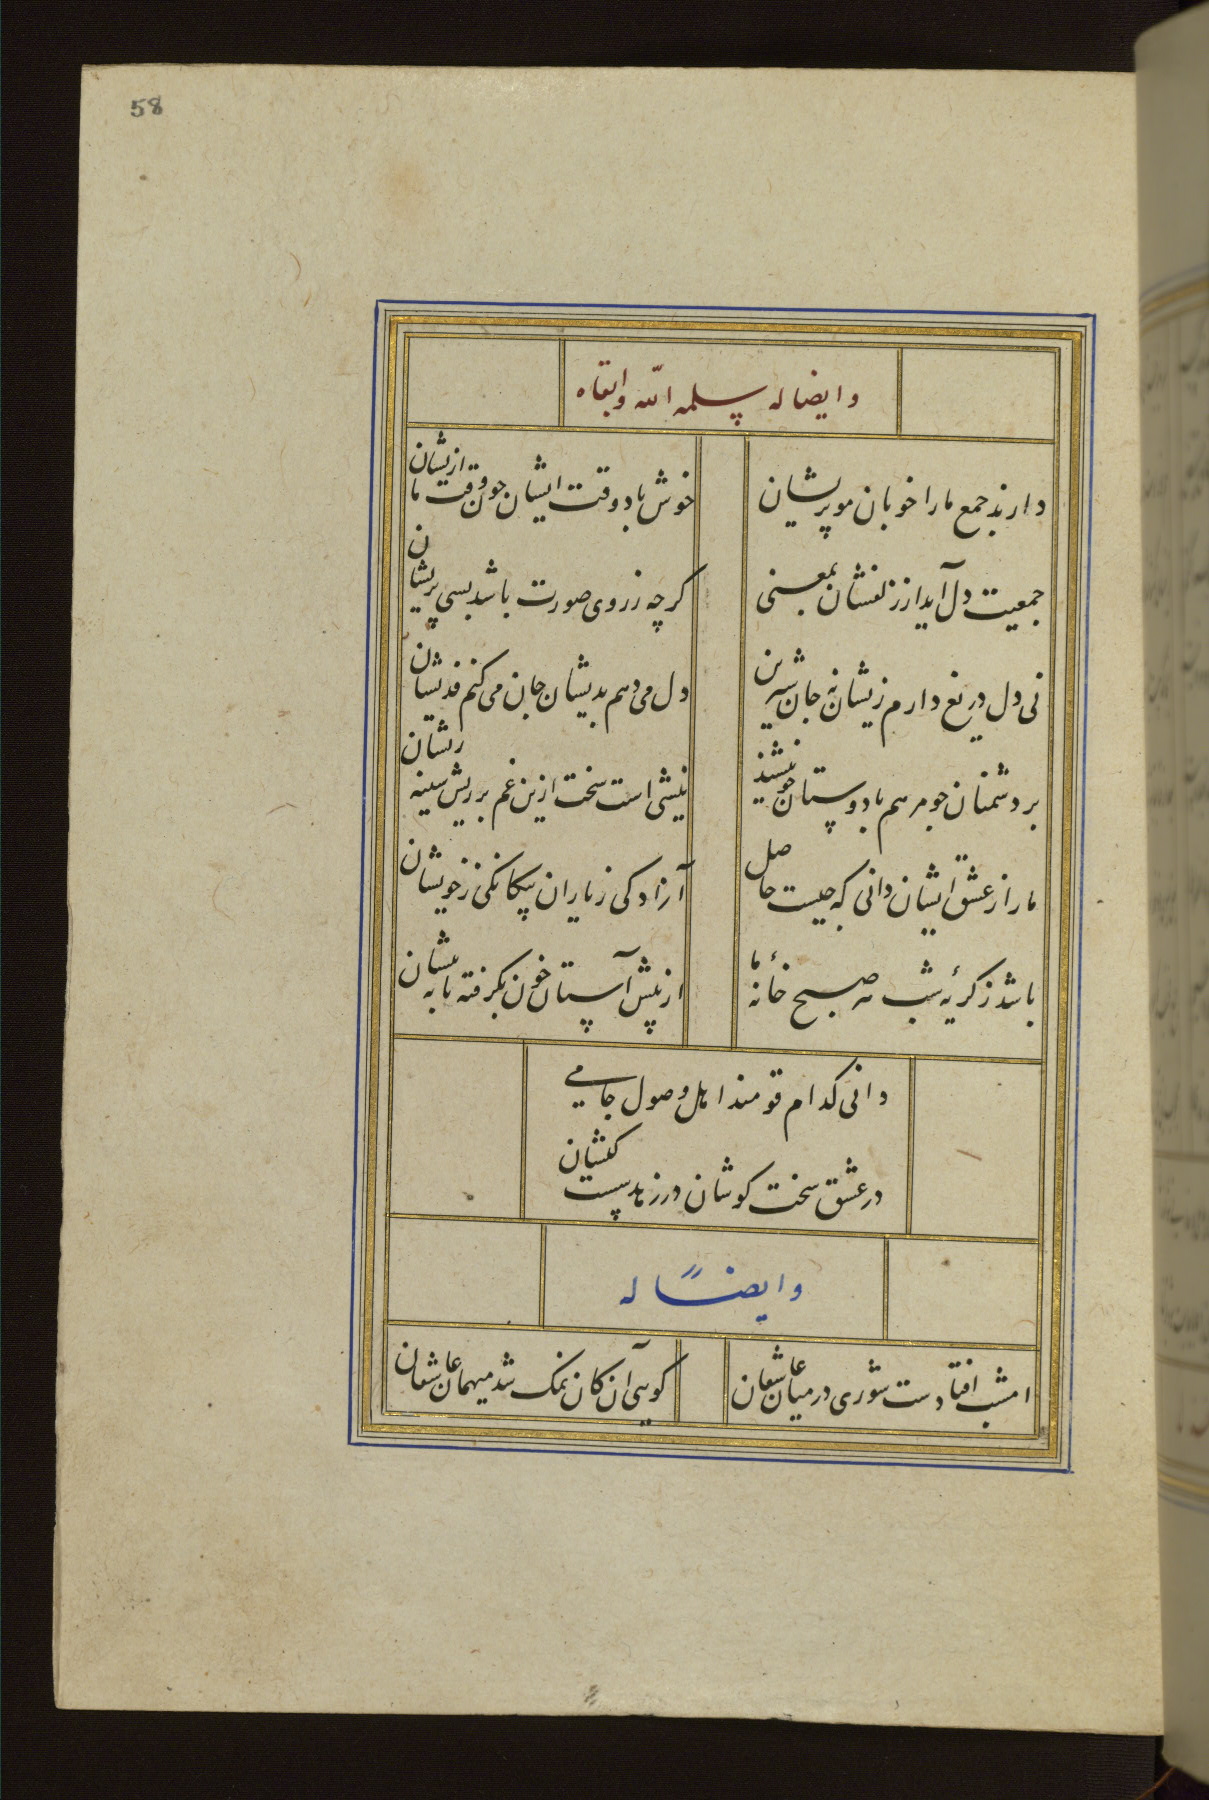 58
وایضا له سلمه الله وابقاه
دارند جمع ما را خوبان مو پریشان
خوش باد وقت ایشان چون وقت ما ازیشان
جمعیت دل آید از زلفشان بمعنی
کرچه ز روی صورت باشد بسی پریشان
نی دل دریغ دارم زیشان نه جان شیرین
دل می دهم بدیشان جان می کنم فدیشان
بر دشمنان چو مرهم با دوستان چو نیشند
نیشی است سخت ازین غم بر ریش سینه ریشان
ما را ز عشق ایشان دانی که چیست حاصل
آزادکی ز یاران بیکانکی ز خویشان
باشد ز کریۀ شب هر صبح خانۀ ما
از پیش آستان خون بکرفته تا به پیشان
دانی کدام قومند اهل وصول جامی
در عشق سخت کوشان در زهد سست کیشان
وایضاً له
امشب افتادست شوری در میان عاشقان
کوییا آن کان نمک شد میهمان عاشقان